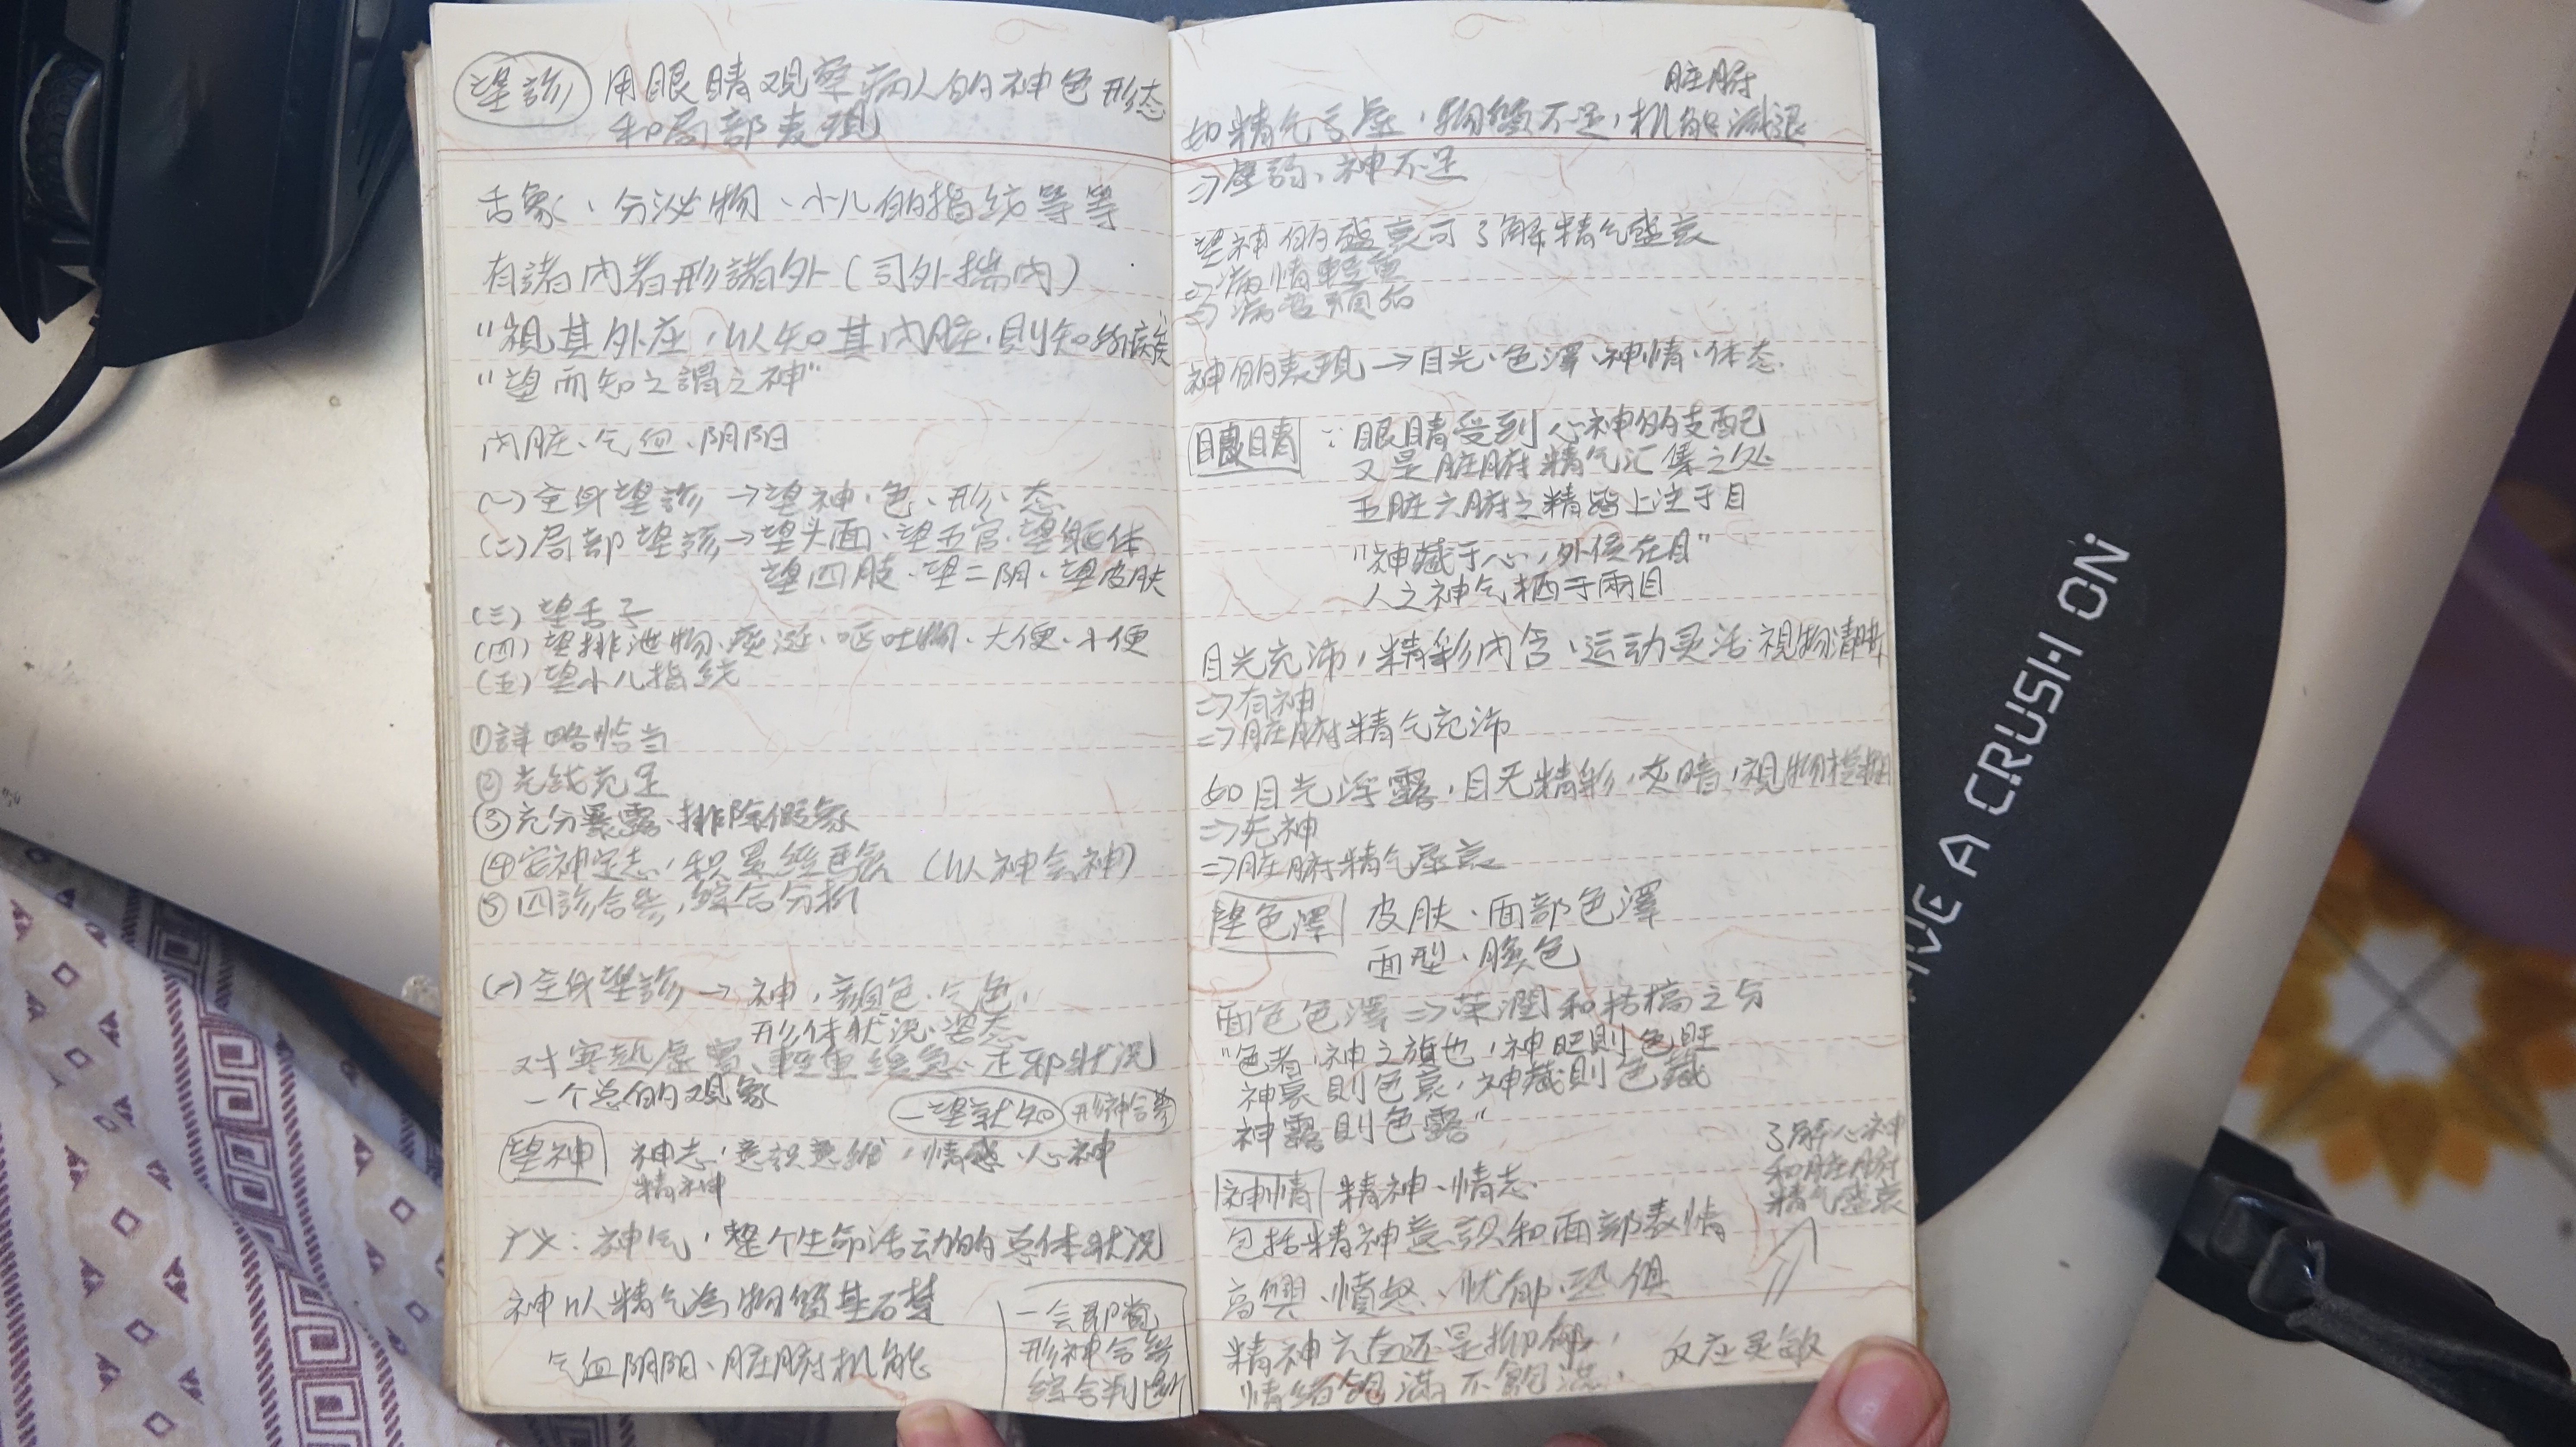 望診 用眼睛观察病人的神色形态
和局部表現
舌象、分泌物、小儿的指纹等等
有諸內者形諸外(司外揣內)
"視其外应,以知其內脏,則知所病矣"
"望而知之謂之神"
內脏、气血、阴阳
(一)全身望診→望神、色、形、态
(二)局部望診→望头面、望五官、望躯体
望四肢、望二阴、望皮肤
(三)望舌子
(四)望排泄物、痰涎、呕吐物、大便、小便
(五)望小儿指纹
①詳略恰当
②光线充足
③充分暴露、排除假象
④安神定志,积累经驗 (以神会神)
⑤四診合参,綜合分析
(一)全身望診→神,顏色、气色,
形体状况、姿态
对寒熱虛实、輕重缓急、正邪状况
一个总的观象
一望就知 形神合参
望神 神志,意識思維,情感、心神
精神
广义:神气,整个生命活动的总体状况
神以精气為物質基础
气血阴阳、脏腑机能
一会即覚
形神合参
綜合判断
脏腑
如精气亏虛,物質不足,机能減退
⇒虛弱、神不足
望神的盛衰可了解精气盛衰
⇒病情輕重
⇒病变預后
神的表現→目光、色澤、神情、体态
眼睛 ∵眼睛受到心神的支配
又是脏腑精气汇集之处
五脏六腑之精皆上注于目
"神藏于心,外候在目"
人之神气栖于兩目
目光充沛,精彩內含,运动灵活、視物清晰
⇒有神
⇒脏腑精气充沛
如目光浮露,目无精彩,灰暗,視物模糊
⇒无神
⇒脏腑精气虛衰
望色澤 皮肤、面部色澤
面型、臉色
面色色澤⇒荣潤和枯槁之分
"色者,神之旗也,神旺則色旺
神衰則色衰,神藏則色藏
神露則色露"
神情 精神、情志
包括精神意識和面部表情
了解心神
和脏腑
精气盛衰
高興、憤怒、忧郁、恐俱
精神六在还是抑郁,反应灵敏
情绪飽滿不飽滿,
IVE A CRUSH ON